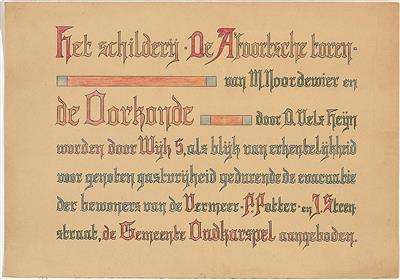 Het schilderij "De A'foortsche toren"
van M. Noordewier en
de Oorkonde door D. Vels Heyn
worden door Wijk 5, als blijk van erkentelijkheid
voor genoten gastvrijheid gedurende de evacuatie
der bewoners van de Vermeer- P. Potter- en J. Steen-
straat, de Gemeente Oudkarspel aangeboden.